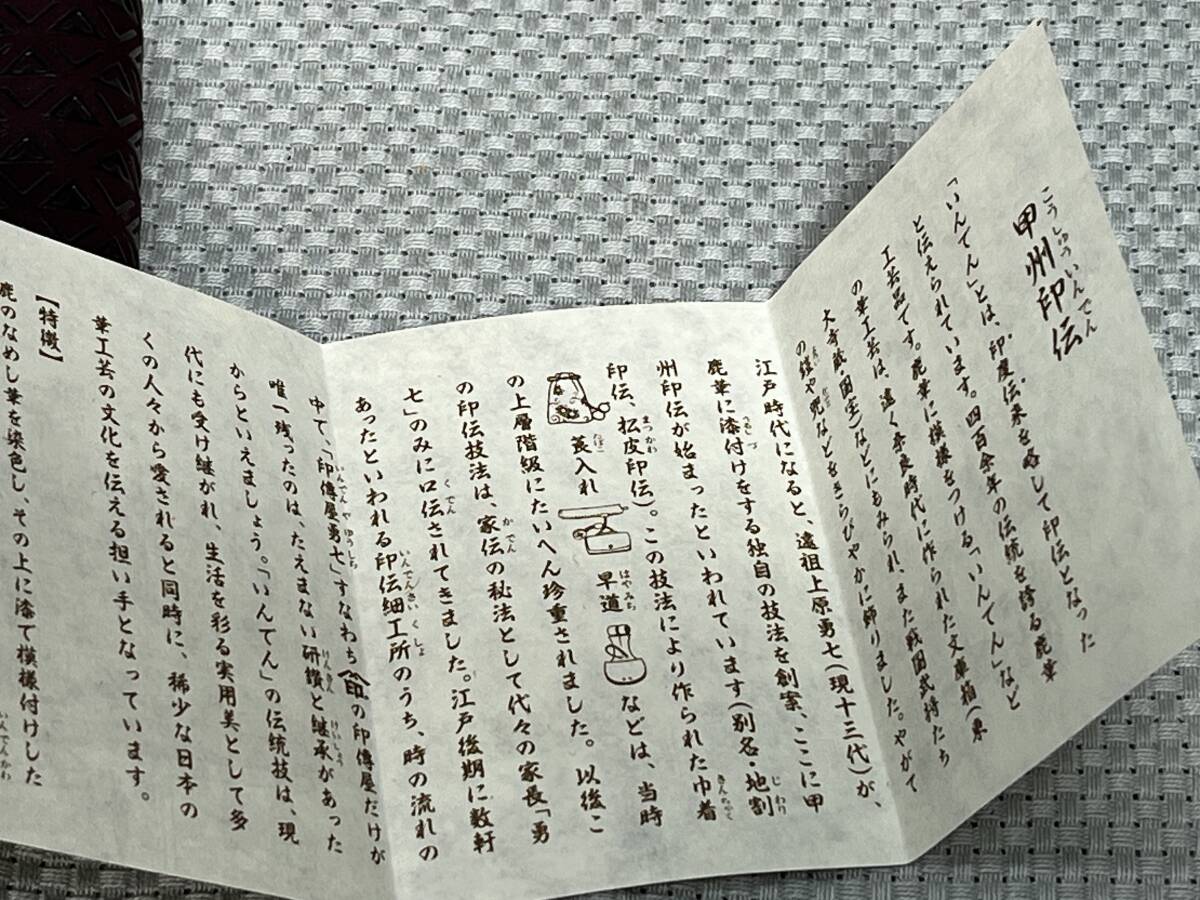 こうしゅういんでん
甲州印伝
「いんでん」とは、印度伝来を略して印伝となった
と伝えられています。四百余年の伝統を誇る鹿革
工芸品です。鹿革に模様をつける「いんでん」など
の革工芸は、遠く奈良時代に作られた文庫箱(東
大寺蔵・国宝)などにもみられ、また戦国武将たち
の鎧や兜などをきらびやかに飾りました。やがて
江戸時代になると、遠祖上原勇七(現十三代)が、
鹿革に漆付けをする独自の技法を創案、ここに甲
州印伝が始まったといわれています(別名・地割
印伝、松皮印伝)。この技法により作られた巾着
莨入れ 早道 などは、当時
の上層階級にたいへん珍重されました。以後こ
の印伝技法は、家伝の秘法として代々の家長「勇
七」のみに口伝されてきました。江戸後期に数軒
あったといわれる印伝細工所のうち、時の流れの
中で、「印傳屋勇七」すなわち印の印傳屋だけが
唯一残ったのは、たえまない研鑽と継承があった
からといえましょう。「いんでん」の伝統技は、現
代にも受け継がれ、生活を彩る実用美として多
くの人々から愛されると同時に、稀少な日本の
革工芸の文化を伝える担い手となっています。
【特徴】
鹿のなめし革を染色し、その上に漆で模様付けした